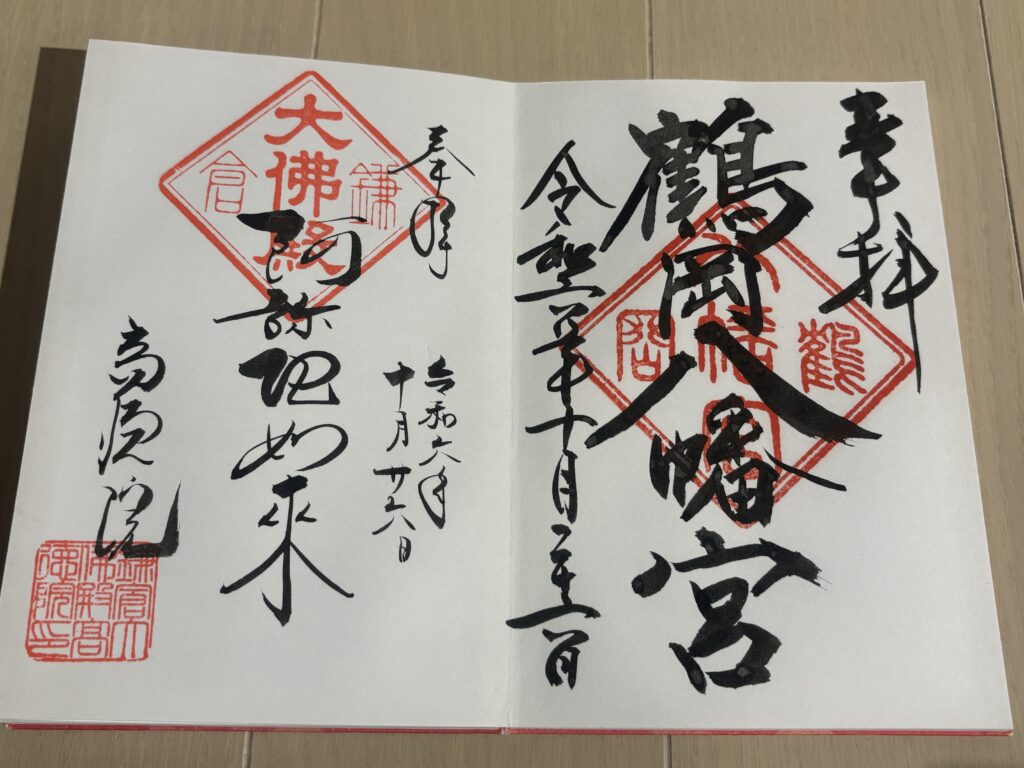 奉拝
鶴岡八幡宮
令和六年十月二十六日
鶴
岡
奉拝
令和六年
十月廿六日
大佛
鎌倉
阿弥陀如来
高徳院
鎌倉大
佛殿高
徳院印